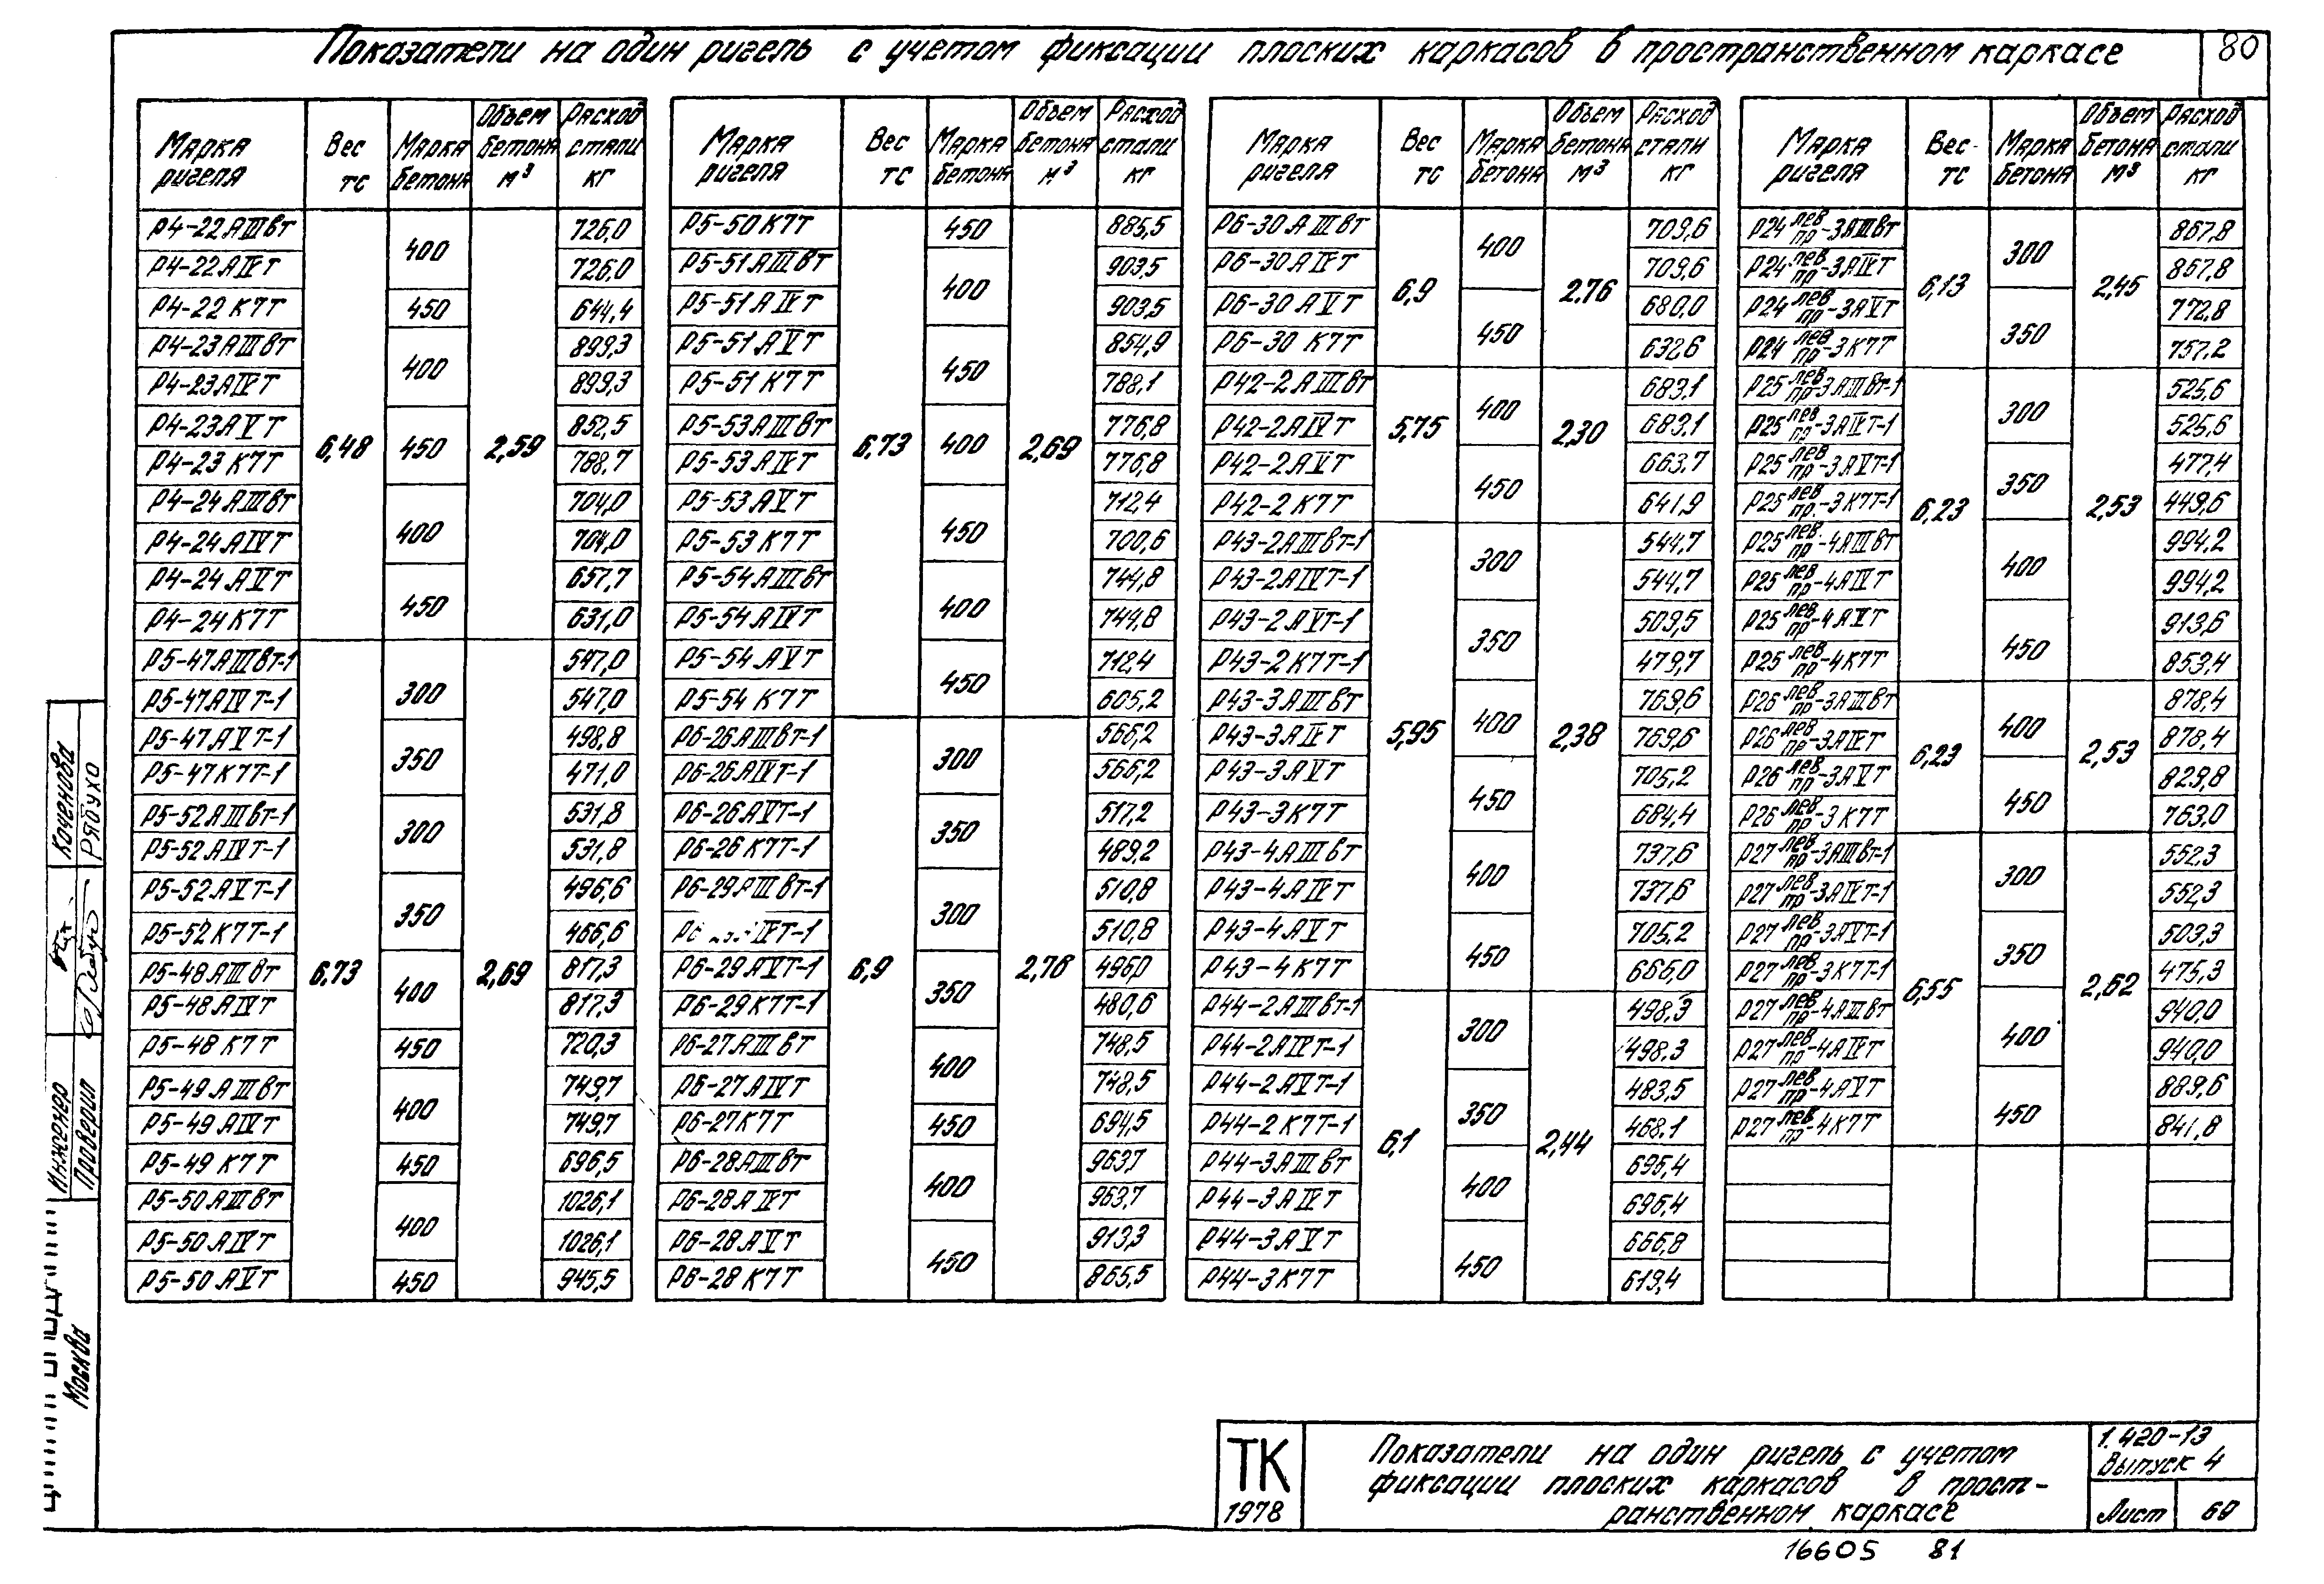 Показатели на один ригель с учетом фиксации плоских каркасов в пространственном каркасе
80
Марка ригеля Вес тс Марка бетона Объем бетона м³ Расход стали кг
Р4-22АIIIвт 6,48 400 2,59 726,0
Р4-22АIVт 726,0
Р4-22К7Т 450 644,4
Р4-23АIIIвт 400 899,3
Р4-23АIVт 899,3
Р4-23АVт 450 852,5
Р4-23К7Т 788,7
Р4-24АIIIвт 400 704,0
Р4-24АIVт 704,0
Р4-24АVт 450 657,7
Р4-24К7Т 631,0
Р5-47АIIIвт-1 6,73 300 2,69 547,0
Р5-47АIVт-1 547,0
Р5-47АVт-1 350 498,8
Р5-47К7Т-1 471,0
Р5-52АIIIвт-1 300 531,8
Р5-52АIVт-1 531,8
Р5-52АVт-1 350 496,6
Р5-52К7Т-1 466,6
Р5-48АIIIвт 400 817,3
Р5-48АIVт 817,3
Р5-48К7Т 450 720,3
Р5-49АIIIвт 400 749,7
Р5-49АIVт 749,7
Р5-49К7Т 450 696,5
Р5-50АIIIвт 400 1026,1
Р5-50АIVт 1026,1
Р5-50АVт 450 945,5
Марка ригеля Вес тс Марка бетона Объем бетона м³ Расход стали кг
Р5-50К7Т 6,73 450 2,69 885,5
Р5-51АIIIвт 400 903,5
Р5-51АIVт 903,5
Р5-51АVт 450 854,9
Р5-51К7Т 788,1
Р5-53АIIIвт 400 776,8
Р5-53АIVт 776,8
Р5-53АVт 450 712,4
Р5-53К7Т 700,6
Р5-54АIIIвт 400 744,8
Р5-54АIVт 744,8
Р5-54АVт 450 712,4
Р5-54К7Т 605,2
Р6-26АIIIвт-1 6,9 300 2,76 566,2
Р6-26АIVт-1 566,2
Р6-26АVт-1 350 517,2
Р6-26К7Т-1 489,2
Р6-29АIIIвт-1 300 510,8
Р6 IVт-1 510,8
Р6-29АVт-1 350 496,0
Р6-29К7Т-1 480,6
Р6-27АIIIвт 400 748,5
Р6-27АIVт 748,5
Р6-27К7Т 450 694,5
Р6-28АIIIвт 400 963,7
Р6-28АIVт 963,7
Р6-28АVт 450 913,3
Р6-28К7Т 865,5
Марка ригеля Вес тс Марка бетона Объем бетона м³ Расход стали кг
Р6-30АIIIвт 6,9 400 2,76 709,6
Р6-30АIVт 709,6
Р6-30АVт 450 680,0
Р6-30К7Т 632,6
Р42-2АIIIвт 5,75 400 2,30 683,1
Р42-2АIVт 683,1
Р42-2АVт 450 663,7
Р42-2К7Т 641,9
Р43-2АIIIвт-1 5,95 300 2,38 544,7
Р43-2АIVт-1 544,7
Р43-2АVт-1 350 509,5
Р43-2К7Т-1 479,7
Р43-3АIIIвт 400 769,6
Р43-3АIVт 769,6
Р43-3АVт 450 705,2
Р43-3К7Т 684,4
Р43-4АIIIвт 400 737,6
Р43-4АIVт 737,6
Р43-4АVт 450 705,2
Р43-4К7Т 666,0
Р44-2АIIIвт-1 6,1 300 2,44 498,3
Р44-2АIVт-1 498,3
Р44-2АVт-1 350 483,5
Р44-2К7Т-1 468,1
Р44-3АIIIвт 400 695,4
Р44-3АIVт 695,4
Р44-3АVт 450 666,8
Р44-3К7Т 619,4
Марка ригеля Вес тс Марка бетона Объем бетона м³ Расход стали кг
Р24 лев пр-3АIIIвт 6,13 300 2,45 867,8
Р24 лев пр-3АIVт 867,8
Р24 лев пр-3АVт 350 772,8
Р24 лев пр-3К7Т 757,2
Р25 лев пр-3АIIIвт-1 6,23 300 2,53 525,6
Р25 лев пр-3АIVт-1 525,6
Р25 лев пр-3АVт-1 350 477,4
Р25 лев пр.-3К7Т-1 449,6
Р25 лев. пр-4АIIIвт 400 994,2
Р25 лев пр-4АIVт 994,2
Р25 лев пр-4АVт 450 913,6
Р25 лев пр-4К7Т 853,4
Р26 лев пр-3АIIIвт 6,23 400 2,53 878,4
Р26 лев пр-3АIVт 878,4
Р26 лев пр-3АVт 450 829,8
Р26 лев пр-3К7Т 763,0
Р27 лев пр-3АIIIвт-1 6,55 300 2,62 552,3
Р27 лев пр-3АIVт-1 552,3
Р27 лев пр-3АVт-1 350 503,3
Р27 лев пр-3К7Т-1 475,3
Р27 лев пр-4АIIIвт 400 940,0
Р27 лев пр-4АIVт 940,0
Р27 лев пр-4АVт 450 889,6
Р27 лев пр-4К7Т 841,8
Инженер Коченова
Проверил Рябухо
Москва
ТК
1978
Показатели на один ригель с учетом
фиксации плоских каркасов в прост-
ранственном каркасе
1.420-13
Выпуск 4
Лист 69
16605 81